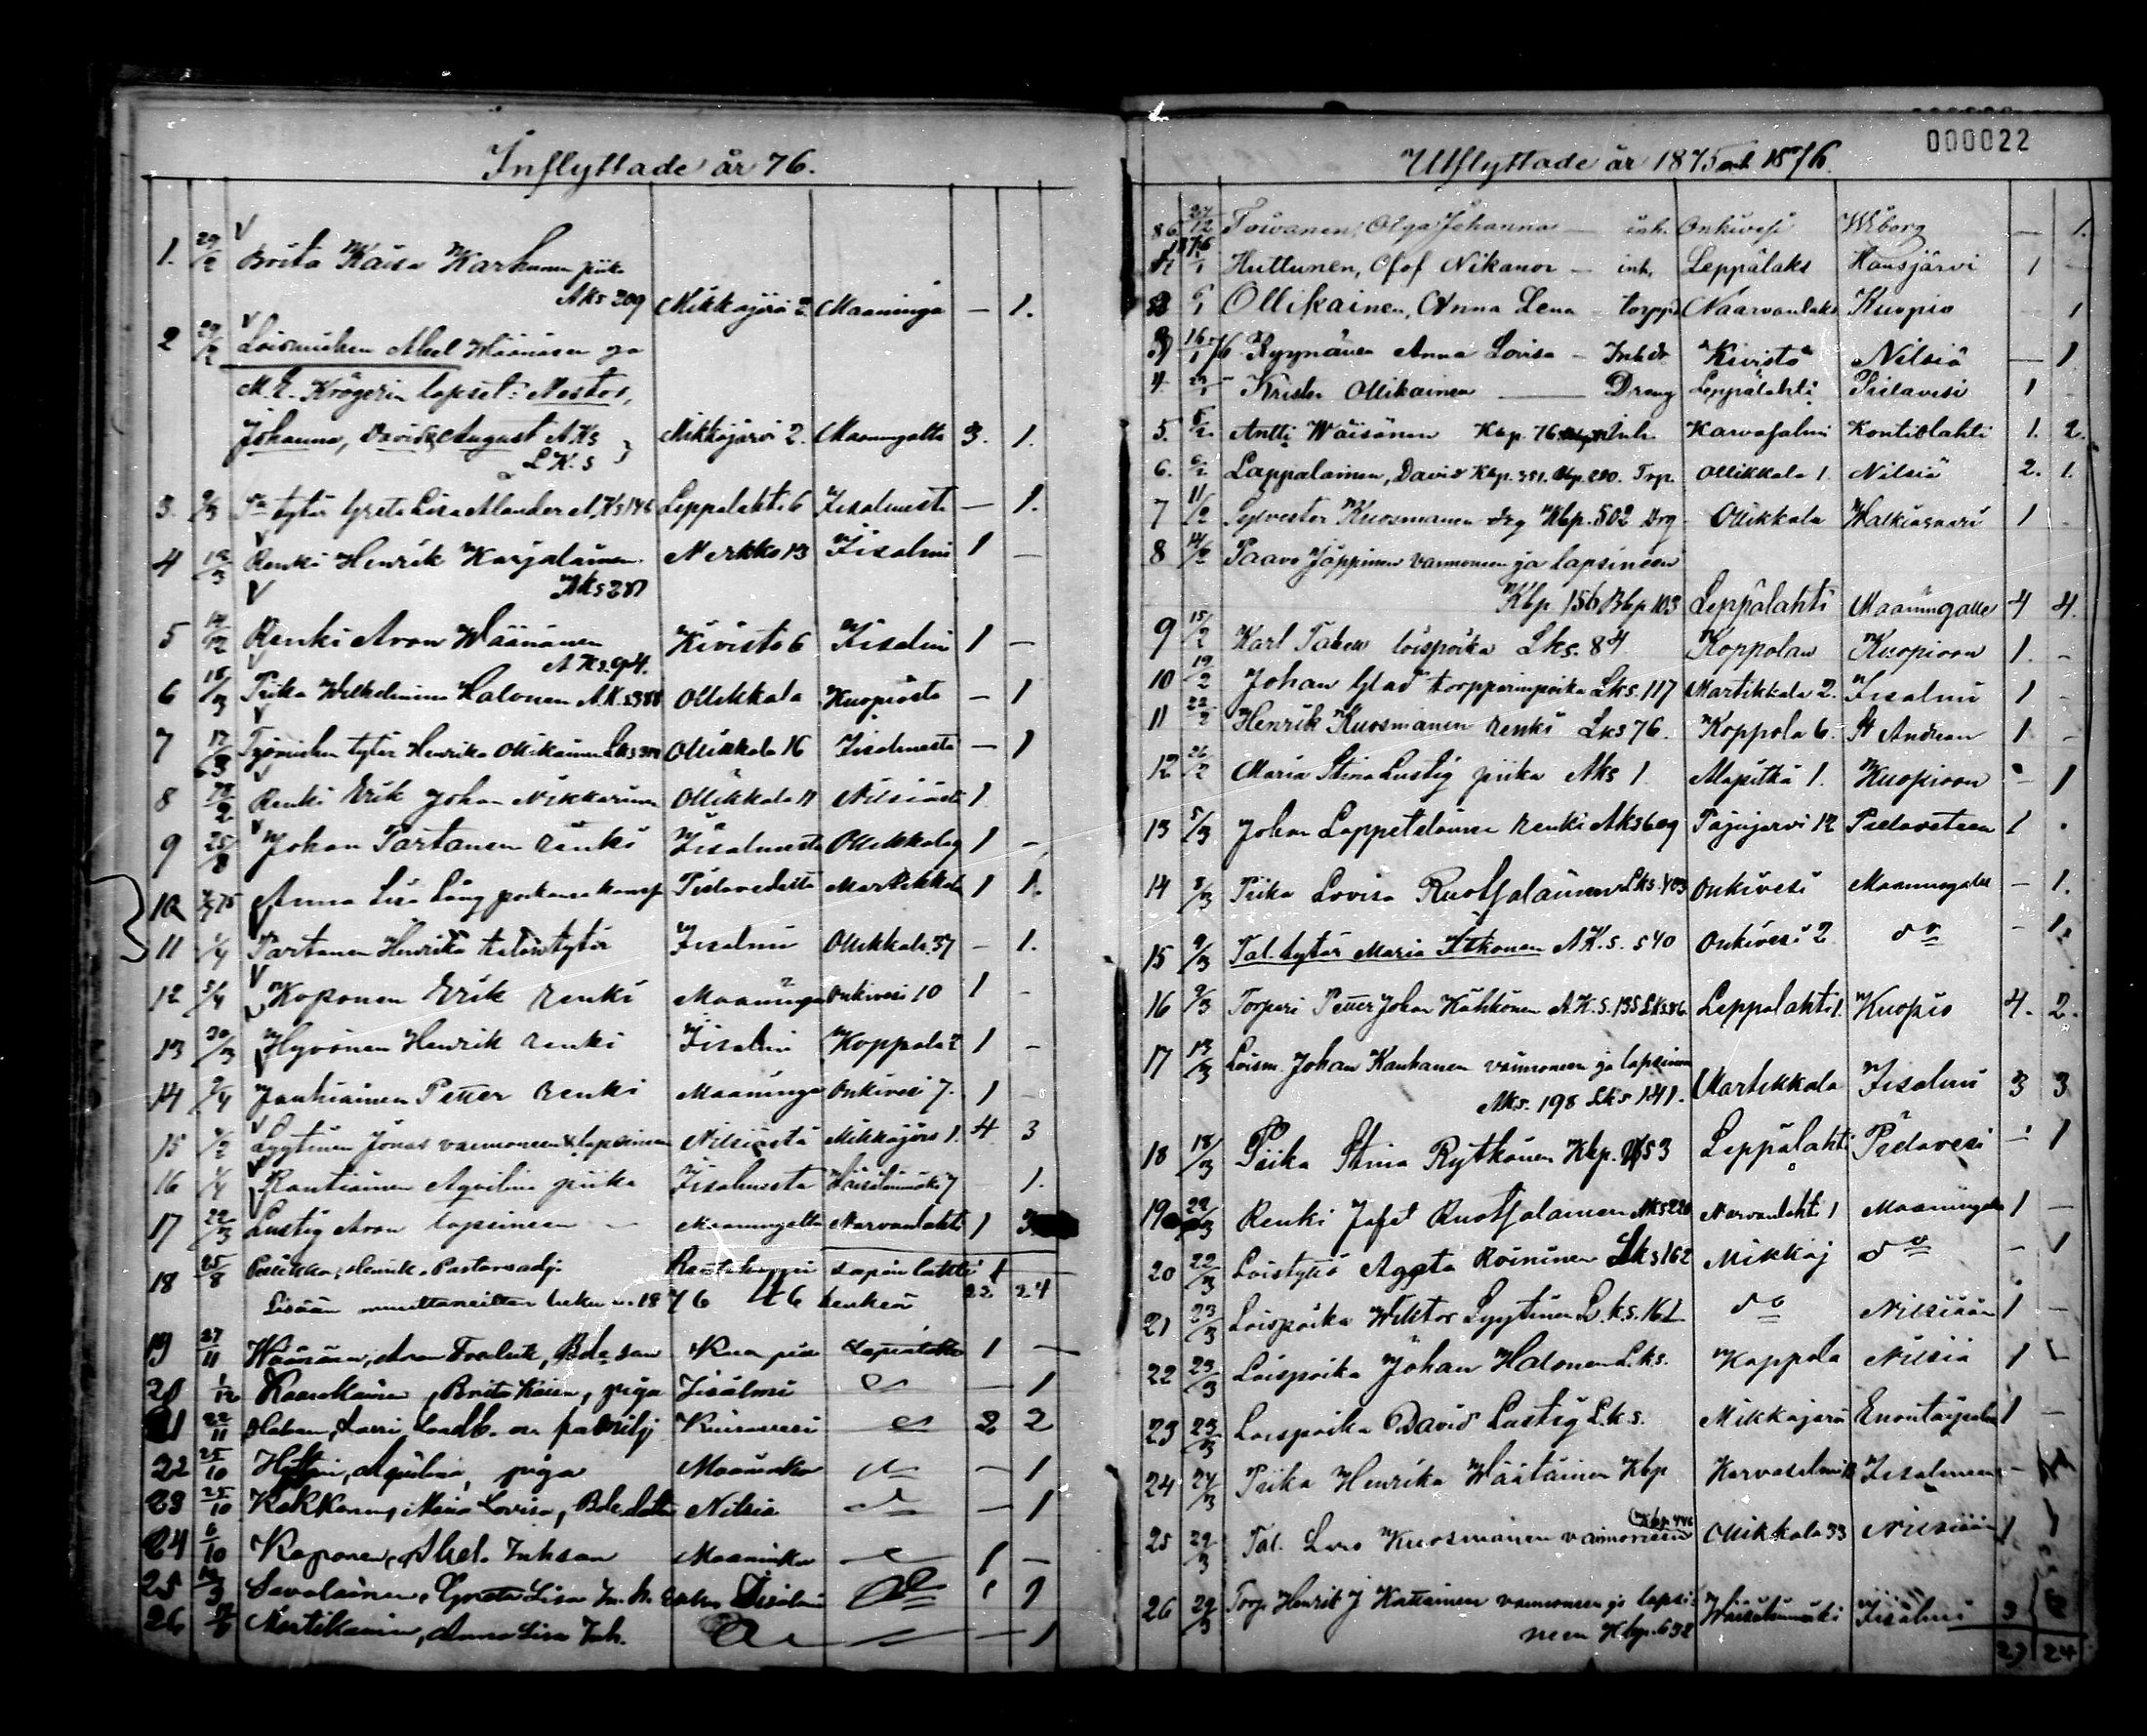 Inflyttade år 76.
1. 29/2 Brita Kaisa Karhunen piika
Aks 209 Mikkajärvi 2. Maaninga — 1.
2 29/2 Loismiehen Abel Väänäsen ja
M. E. Krögerin lapset: Nestor,
Johanna, David & August AKs Mikkajärvi 2. Maaningalta 3. 1.
LK.s
3. 9/3 tytär Greta Lisa Alander A.Ks 146 Leppälahti 6 Iisalmesta — 1.
4 12/3 Renki Henrik Karjalainen Nerkko 13 Iisalmi 1 —
Aks 287
5 14/12 Renki Aron Väänänen Kivistö 6 Iisalmi 1 —
A Ks. 94.
6 18/3 Piika Wilhelmina Halonen A.K.s 388 Ollikkala Kuopiosta — 1
7 17/3 Työmiehen tytär Henrika Ollikainen Lks Ollikkala 16 Iisalmesta — 1
8 Renki Erik Johan Nikkarinen Ollikkala 11 Nilsiästä 1
9 25/8 Johan Partanen renki Iisalmesta Ollikkala 1 —
10 Anna Lisa Lång poikansa kanssa Pielavedeltä Martikkala 1 1.
11 1/4 Partanen Henrika talontytär Iisalmi Ollikkala 37 — 1.
12 5/4 Koponen Erik renki Maaninga Onkivesi 10 1 -
13 30/3 Hyvönen Henrik renki Iisalmi Koppola 2 1 —
14 9/4 Jauhiainen Petter renki Maaninga Onkivesi 7. 1 —
15 4/2 Lyytinen Jonas vaimoneen & lapsineen Nilsiästä Mikkajärvi 1. 4. 3
16 4/4 Rautiainen Aqvilina piika Iisalmesta Väisälänmäki 7 1.
17 22/3 Lustig Aron lapsineen — Maaningalta Narvanlahti 1 3
18 25/8 Henrik Pastorsadj. Lapinlahti 1
Lisään muuttaneitten luku v. 1876 46 henkeä 22 24
19 27/11 Väänänen, Aron Fredrik, Bdeson Kuopio Lapinlahti 1 —
20 1/12 Brita Kaisa, piga Iisalmi — 1
21 22/11 Kiuruvesi 2 2
22 25/10 Aqvilina, piga Maaninka — 1
23 25/10 Kekkonen, Maria Lovisa, Bde dotter Nilsiä — 1
24 6/10 Koponen, Abel. Inhson Maaninka 1 —
25 Savolainen, Greta Lisa Inh. Enka Iisalmi 1 1
26 Martikainen, Anna Lisa Inh. — 1
000022
Utflyttade år 1875 och 1876.
86 27/12 Toivanen, Olga Johanna — inh. Onkivesi Wiborg — 1.
1876
1 Huttunen, Olof Nikanor — inh. Leppälaks Hausjärvi 1 —
2 5/1 Ollikainen, Anna Lena — torpd. Naarvanlaks Kuopio — 1
3 16/1 76 Ryynänen Anna Lovisa — Inhdr Kivistö Nilsiä — 1
4. 29/1 Krister Ollikainen — Dreng Leppälahti Pielavesi 1 -
5. 5/2 Antti Wäisänen Kbp. 76 Inh. Karvasalmi Kontiolahti 1. 2.
6. 5/2 Lappalainen, David Kbp. 351. Bbp. 220. Torp. Ollikkala 1. Nilsiä 2. 1.
7 11/2 Sylvester Kuosmanen drg Kbp. 502 Drg Ollikkala Walkiasaari 1 -
8 14/2 Paavo Jäppinen vaimoneen ja lapsineen
Kbp 156 Bbp 103 Leppälahti Maaningalle 4 4.
9 15/2 Karl Tabell loispoika Lks. 84 Koppolan Kuopioon 1. -
10 19/2 Johan Glad torpparinpoika Lks. 117 Martikkala 2. Iisalmi 1 -
11 22/2 Henrik Kuosmanen renki Lks 76. Koppola 6. St Andrean 1 -
12 26/2 Maria Stina Lustig piika Aks 1. Alapitkä 1. Kuopioon - 1
13 5/3 Johan Lappeteläinen renki Aks 609 Pajujärvi 12 Pielaveteen 1 .
14 8/3 Piika Lovisa Ruotsalainen Lks. 403 Onkivesi Maaningalle — 1.
15 9/3 Tal. tytär Maria Itkonen A.K.s. 540 Onkivesi 2 do - 1.
16 9/3 Torpari Petter Johan Kähkönen A.K.S. 135 Lks 86 Leppälahti 1. Kuopio 4. 2.
17 13/3 Loism. Johan Kauhanen vaimoneen ja lapsineen
Aks. 198 Lks 141. Martikkala Iisalmi 3 3
18 18/3 Piika Stina Rytkönen Kbp. 253 Leppälahti Pielavesi - 1
19 22/3 Renki Jafet Ruotsalainen Aks 220 Narvanlahti 1 Maaningalle 1 —
20 22/3 Loistyttö Agata Roininen Lks 162 Mikkaj do - 1
21 23/3 Loispoika Wiktor Lyytinen L.k.s. 161 do Nilsiään 1 —
22 23/3 Loispoika Johan Halonen L.ks. Koppola Nilsiä 1 —
23 23/3 Loispoika David Lustig L.k.s. Mikkajärvi 1 —
24 24/3 Piika Henrika Väätäinen Kbp Karvasalmi Iisalmeen - 1
25 29/3 Tal. Lars Kuosmanen vaimoneen Kbp 446 Ollikkala 33 Nilsiään 1 1
26 29/3 Torp. Henrik J Kattainen vaimoneen ja lapsi-
neen Kbp. 632 Väisälänmäki Iisalmi 3
27 24